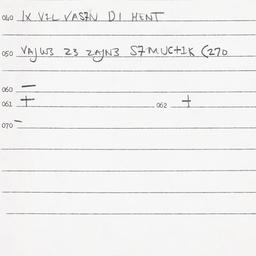 040 IX VZL VASZN DI HENT
050 VAJW3 23 ZAJN3 S7MUC+IK (270
060 —
061 + 062 +
070 —